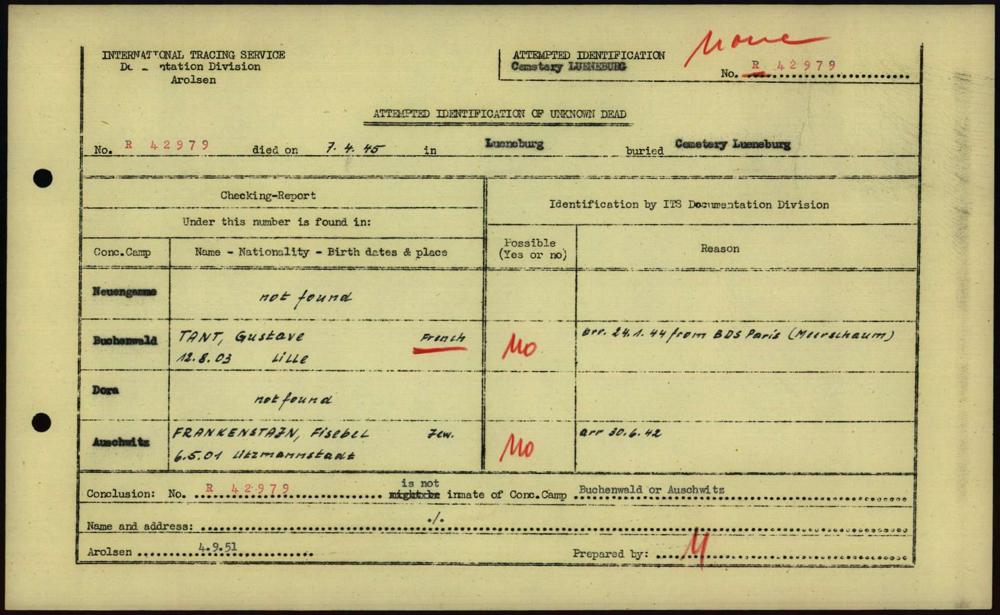 INTERNATIONAL TRACING SERVICE
Documentation Division
Arolsen
ATTEMPTED IDENTIFICATION
Cemetery LUENEBURG
None
No. R 42979
ATTEMPTED IDENTIFICATION OF UNKNOWN DEAD
No. R 42979 died on 7.4.45 in Lueneburg buried Cemetery Lueneburg
Checking-Report
Under this number is found in:
Identification by ITS Documentation Division
Conc.Camp Name - Nationality - Birth dates & place Possible (Yes or no) Reason
Neuengamme not found
Buchenwald TANT, Gustave French No arr. 24.1.44 from BDS Paris (Meerschaum)
12.8.03 Lille
Dora not found
Auschwitz FRANKENSTAJN, Fisebel Jew. No arr 30.6.42
6.5.01 Litzmannstadt
is not
Conclusion: No. R 42979 might be inmate of Conc.Camp Buchenwald or Auschwitz
Name and address: ./.
Arolsen 4.9.51 Prepared by: